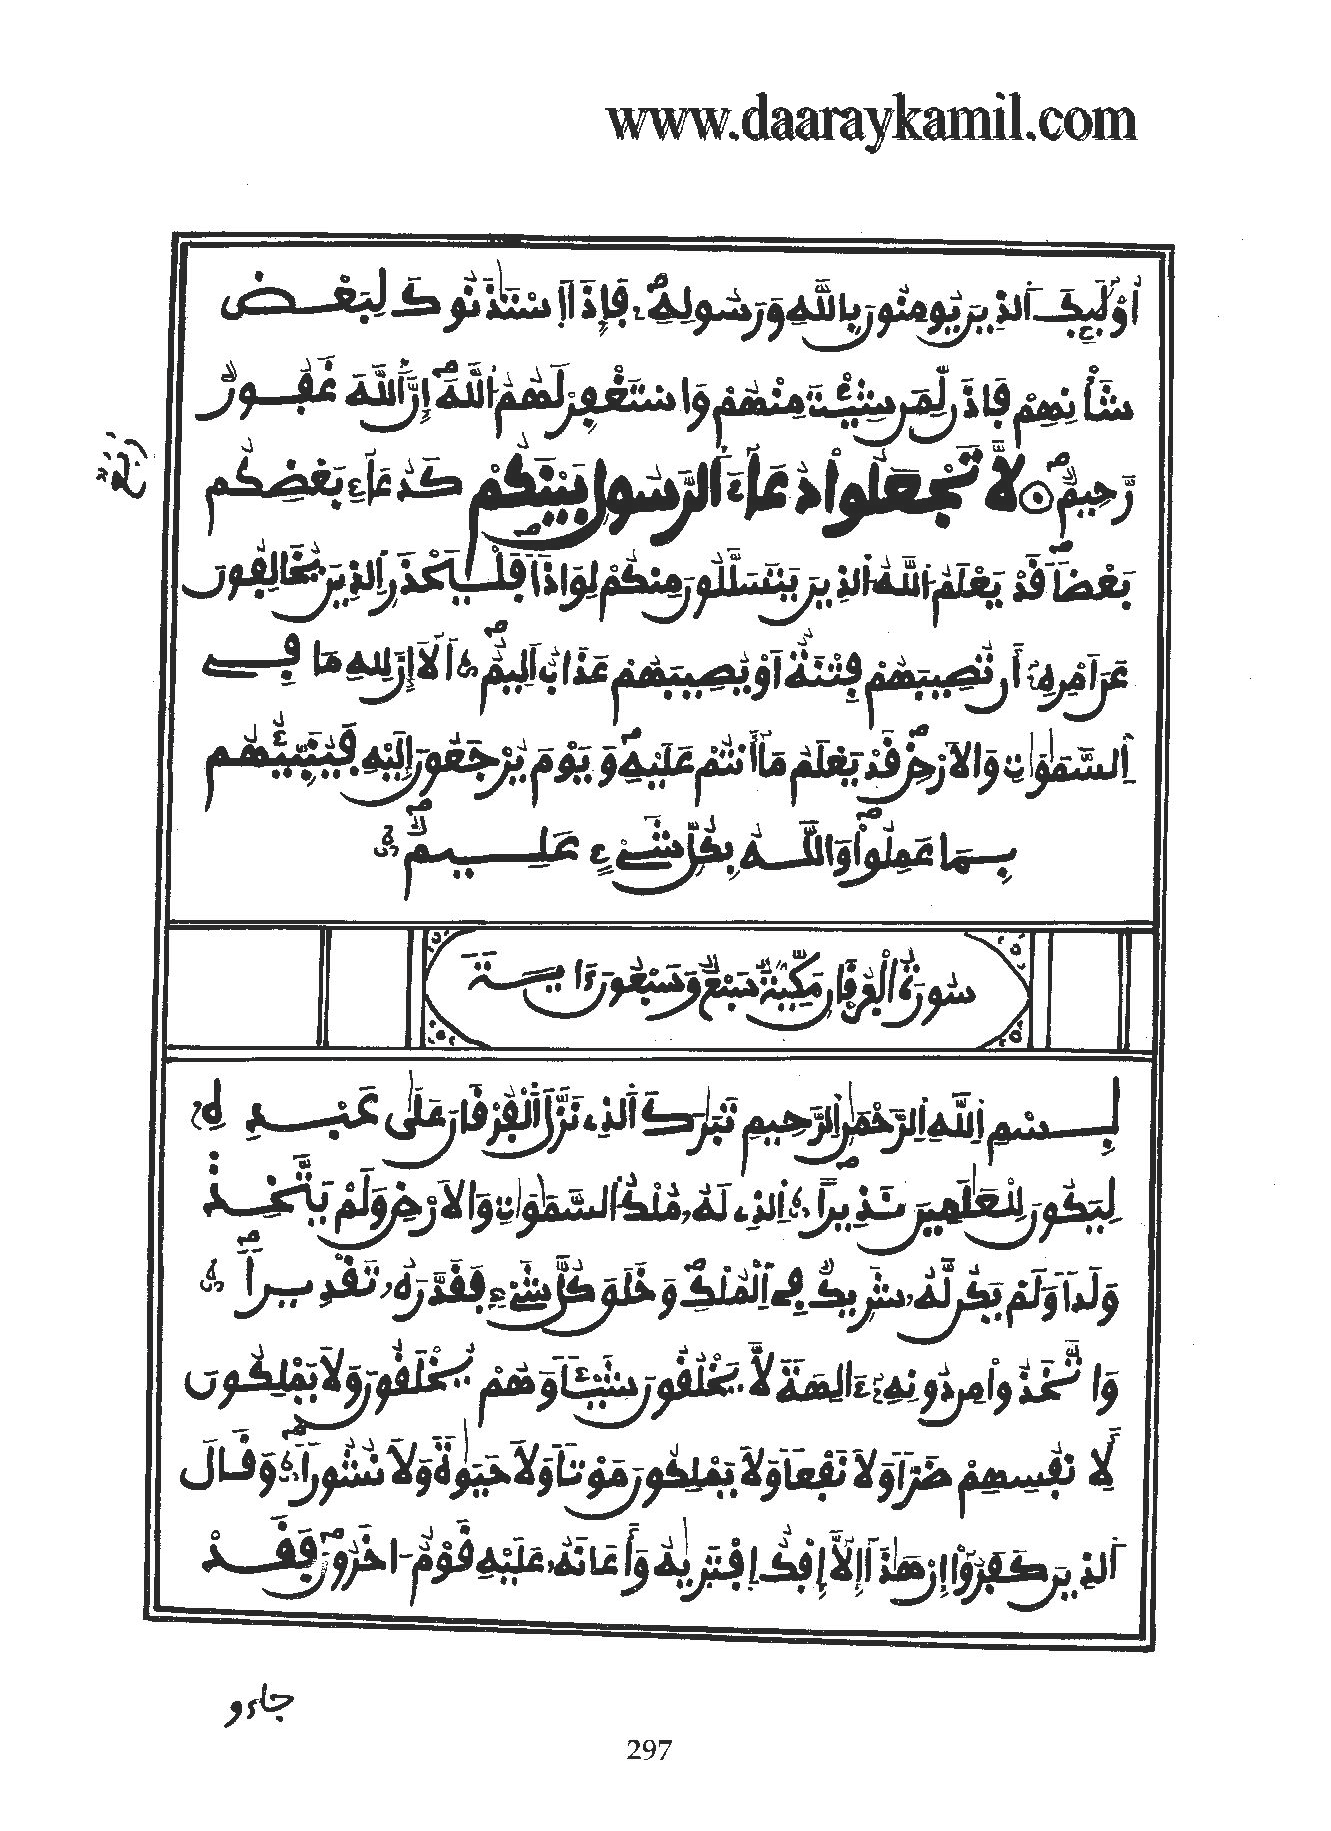 www.daaraykamil.com
أُوْلَٰٓئِكَ ٱلذِينَ يُومِنُونَ بِاللَّهِ وَرَسُولِهِۦ فَإِذَا ٱسْتَـٰٔذَنُوكَ لِبَعْضِ
شَأْنِهِمْ فَاذَن لِّمَن شِئْتَ مِنْهُمْ وَاسْتَغْفِرْ لَهُمُ ٱللَّهَ إِنَّ ٱللَّهَ غَفُورٌ
رَّحِيمٌ لَّا تَجْعَلُوا۟ دُعَآءَ ٱلرَّسُولِ بَيْنَكُمْ كَدُعَآءِ بَعْضِكُم
رُبُعٌ
بَعْضاً قَدْ يَعْلَمُ ٱللَّهُ ٱلذِينَ يَتَسَلَّلُونَ مِنكُمْ لِوَاذاً فَلْيَحْذَرِ ٱلذِينَ يُخَالِفُونَ
عَنَ امْرِهِۦٓ أَن تُصِيبَهُمْ فِتْنَةٌ اَوْ يُصِيبَهُمْ عَذَابٌ اَلِيمٌ اَلَآ إِنَّ لِلهِ مَا فِے
اِ۬لسَّمَٰوَٰتِ وَالَارْضِ قَدْ يَعْلَمُ مَآ أَنتُمْ عَلَيْهِ وَيَوْمَ يُرْجَعُونَ إِلَيْهِ فَيُنَبِّئُهُم
بِمَا عَمِلُوا۟ وَاللَّهُ بِكُلِّ شَےْءٍ عَلِيمٌ
سُورَةُ الْفُرْقَانِ مَكِّيَّةٌ سَبْعٌ وَسَبْعُونَ ءَايَةً
بِسْمِ ٱللَّهِ ٱلرَّحْمَٰنِ ٱلرَّحِيمِ تَبَٰرَكَ ٱلذِے نَزَّلَ ٱلْفُرْقَانَ عَلَىٰ عَبْدِهِ
لِيَكُونَ لِلْعَٰلَمِينَ نَذِيراً ٱلذِے لَهُۥ مُلْكُ ٱلسَّمَٰوَٰتِ وَالَارْضِ وَلَمْ يَتَّخِذْ
وَلَداً وَلَمْ يَكُن لَّهُۥ شَرِيكٌ فِے ٱلْمُلْكِ وَخَلَقَ كُلَّ شَےْءٍ فَقَدَّرَهُۥ تَقْدِيراً
وَاتَّخَذُوا۟ مِن دُونِهِۦٓ ءَالِهَةً لَّا يَخْلُقُونَ شَيْئاً وَهُمْ يُخْلَقُونَ وَلَا يَمْلِكُونَ
لِأَنفُسِهِمْ ضَرّاً وَلَا نَفْعاً وَلَا يَمْلِكُونَ مَوْتاً وَلَا حَيَوٰةً وَلَا نُشُوراً وَقَالَ
ٱلذِينَ كَفَرُوٓا۟ إِنْ هَٰذَآ إِلَّآ إِفْكٌ اِ۪فْتَرَيٰهُ وَأَعَانَهُۥ عَلَيْهِ قَوْمٌ اٰخَرُونَ فَقَدْ
جاءو
297